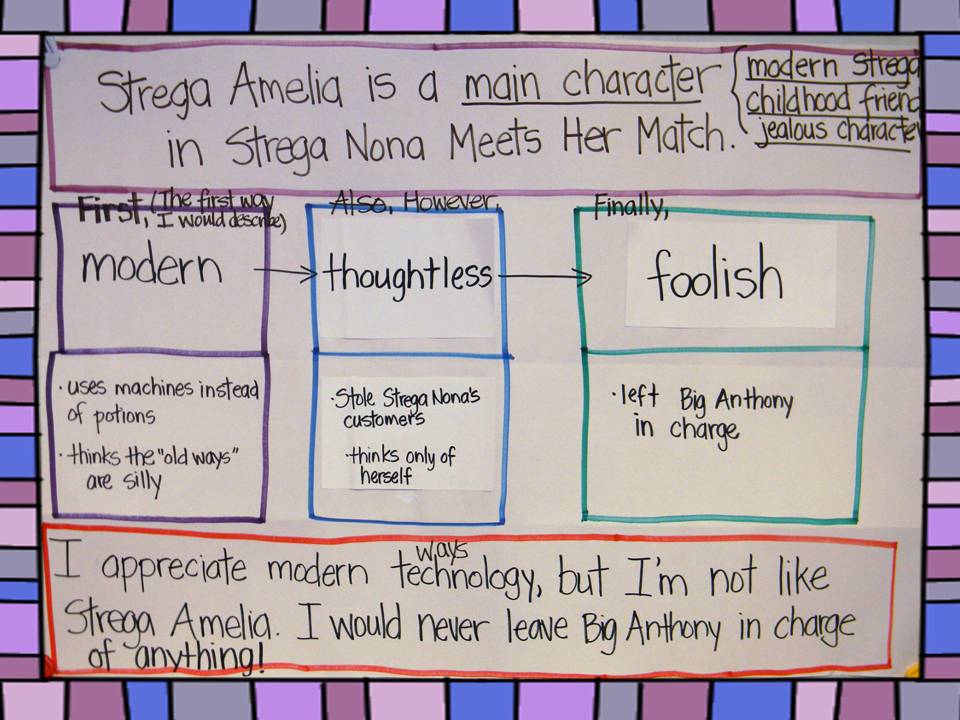 Strega Amelia is a main character
in Strega Nona Meets Her Match.
modern Strega
childhood friend
jealous character
First, (The first way
I would describe)
modern
· uses machines instead
of potions
· thinks the "old ways"
are silly
Also, However,
thoughtless
· Stole Strega Nona's
customers
· thinks only of
herself
Finally,
foolish
· left Big Anthony
in charge
ways
I appreciate modern technology, but I'm not like
Strega Amelia. I would never leave Big Anthony in charge
of anything!